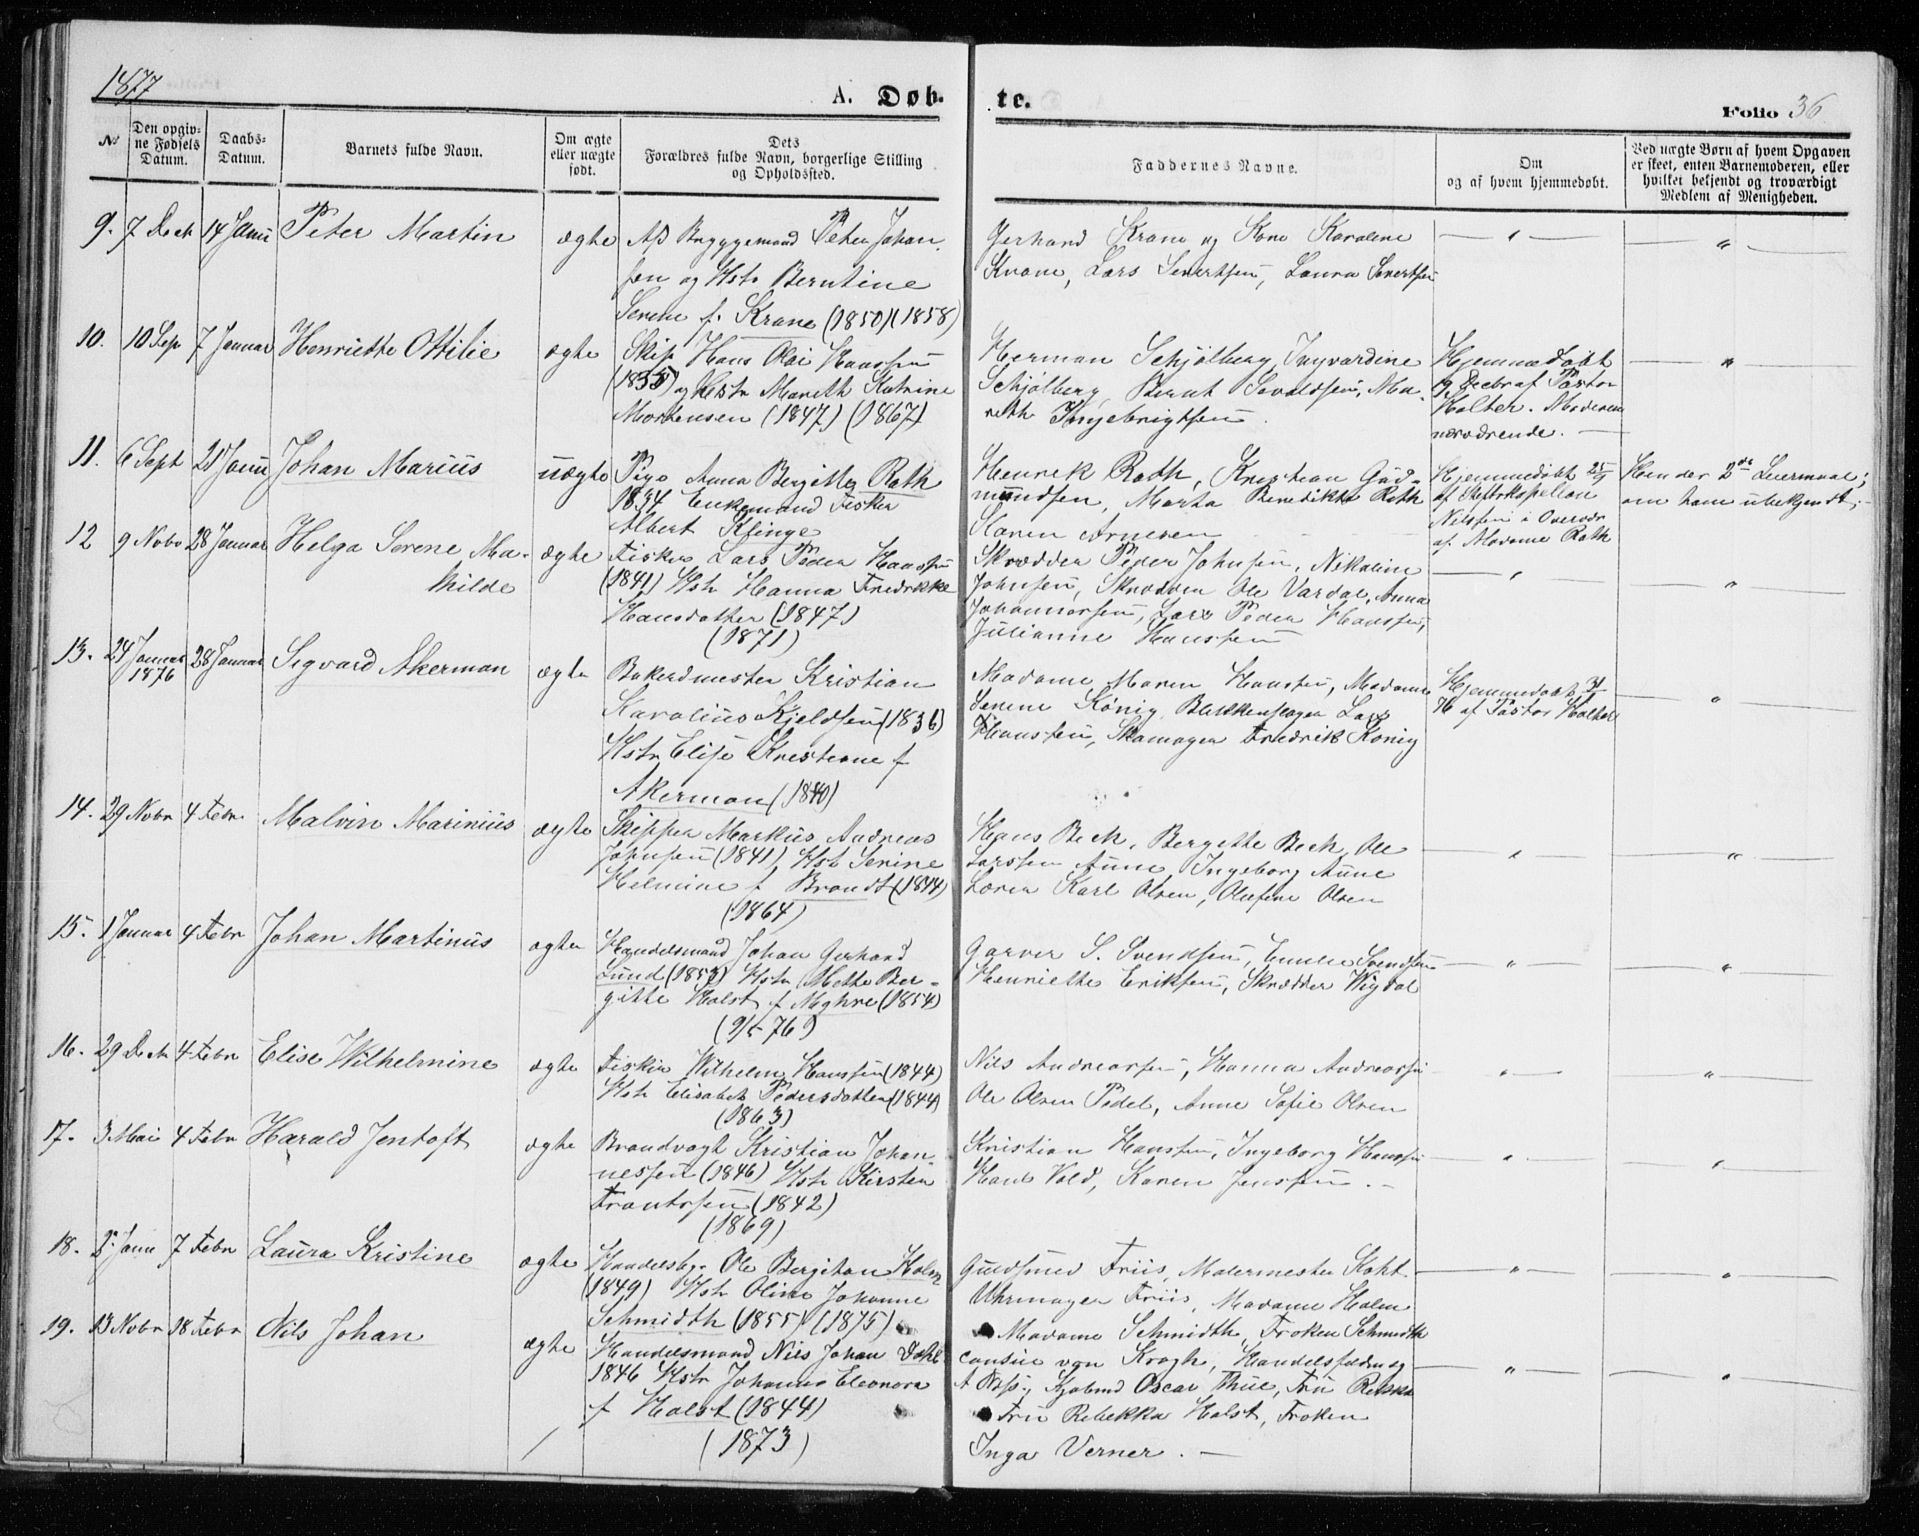 1877
A. Døb- te.
Folio 36
No
Den opgiv-
ne Fødsels
Datum.
Daabs-
Datum.
Barnets fulde Navn.
Om ægte
eller uægte
født.
Dets
Forældres fulde Navn, borgerlige Stilling
og Opholdsted.
Faddernes Navne.
Om
og af hvem hjemmedøbt.
Ved uægte Børn af hvem Opgaven
er skeet, enten Barnemoderen, eller
hvilket bekjendt og troværdigt
Medlem af Menigheden.
9. 7 Dech 14 Janu Peter Martin ægte
Bryggemand Peter Johan
sen og Hstr Berntine
Serene f. Krane (1850) (1858)
Gerhard Krane og Kone Karoline
Krane, Lars Sivertsen, Laura Sivertsen
10. 10 Sep 7 Januar Henriette Ottilie ægte
Skip Hans Olai Hanssen
(1835) og Hstr Mareth Katrine
Mortensen (1847) (1867)
Herman Schjølberg, Ingvardine
Schjølberg, Bernt Sivaldsen, Ma-
reth Ingebrigtsen
Hjemmedøbt
19 Decbr af Pastor
Halter. Moderen
nærværende.
11. 6 Sept 21 Janu Johan Marius uægte
Pige Anna Bergitte Roth
1834 Enkemand Fisker
Albert Klinge
Henrik Roth, Kristian Gud-
mundsen, Marta Benedikte Roth
Karen Arnesen
Hjemmedøbt
af Stiftskapellan
Nilssen i Overvær
af Madame Roth
Hendes 2det Leiermaal;
om ham ubekjendt;
12 9 Nobr 28 Januar Helga Serene Ma-
thilde
ægte
Fisker Lars Peder Hanssen
(1841) Hstr Hanna Fredrikke
Hansdatter (1847)
(1871)
Skrædder Peder Johnsen, Nikoline
Johnsen, Skrædder Ole Vardal, Anna
Johannessen, Lars Peder Hanssen,
Julianne Hanssen
13. 24 Januar
1876
28 Januar Sigvard Akerman ægte
Bakermester Kristian
Karolius Kjeldsen (1836)
Hstr Elise Kristiane f
Akerman (1840)
Madame Maren Hanssen, Madame
Serene König, Blikkenslager Lars
Hanssen, Skomager Fredrik König
Hjemmedøbt
76 af Pastor Halter
14. 29 Nobr 4 Febr. Malvin Marinius ægte
Skipper Markus Andreas
Johnsen (1841) Hstr Serine
Helmine f Brandt (1844)
(1864)
Hans Bech, Bergitte Bech, Ole
Larssen Aune, Ingeborg Aune
Lærer Karl Olsen, Olufine Olsen
15. 1 Januar 4 Febr Johan Martinus ægte
Handelsmand Johan Gerhard
Lund (1852) Hstr Mette Ber-
gitte Holst f Myhre (1854)
(9/5 76)
Garver S. Svendsen, Emelie Svendsen
Henriette Eriksen, Skrædder Wigdal
16. 29 Dech 4 Febr Elise Wilhelmine ægte
Fisker Wilhelm Hanssen (1844)
Hstr Elisabet Pedersdatter (1844)
(1863)
Nils Andreassen, Hanna Andreassen
Ole Olsen Pedel, Anne Sofie Olsen
17. 3 Mai 4 Febr Harald Jentoft ægte
Brandvagt Kristian Johan-
nessen (1846) Hstr Kirsten
Frantssen (1842)
(1869)
Kristian Hanssen, Ingeborg Hanssen
Hans Vold, Karen Jenssen.
18. Janu 7 Febr Laura Kristine ægte
Handelsbg. Ole Bergithon Holm
(1849) Hstr Oline Johanne
Schmidth (1855) (1875)
Guldsmed Friis, Malermester Koht
Uhrmager Friis, Madame Holm
Madame Schmidth, Frøken Schmidth
19. 13 Nobr 18 Febr Nils Johan ægte
Handelsmand Nils Johan Dahl
1846 Hstr Johanna Eleonora
f Holst (1844)
(1873)
Consul von Krogh, Handelsfuldmæg
Kjøbmd Oscar Thue, Fru
Fru Rebekka Holst, Frøken
Inga Verner.